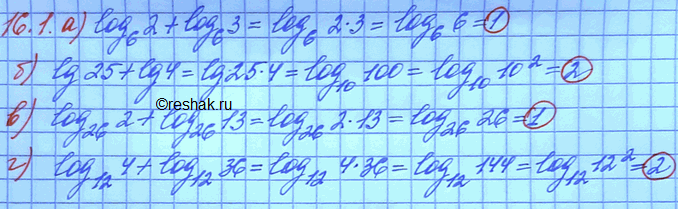 16.1. а) log₆ 2 + log₆ 3 = log₆ 2·3 = log₆ 6 = 1
б) lg 25 + lg 4 = lg 25·4 = log₁₀ 100 = log₁₀ 10² = 2
©reshak.ru
в) log₂₆ 2 + log₂₆ 13 = log₂₆ 2·13 = log₂₆ 26 = 1
г) log₁₂ 4 + log₁₂ 36 = log₁₂ 4·36 = log₁₂ 144 = log₁₂ 12² = 2